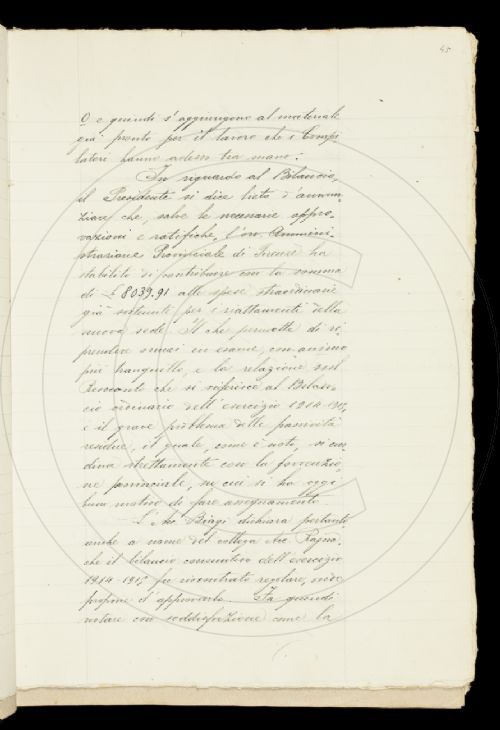 45
O e quindi s'aggiungono al materiale
già pronto per il lavoro che i Compi-
latori hanno adesso tra mano.
In riguardo al Bilancio,
il Presidente si dice lieto d'annun-
ziare che, salve le necessarie appro-
vazioni e ratifiche, l'on. Ammini-
strazione Provinciale di Firenze ha
stabilito di contribuire con la somma
di £ 8039.91 alle spese straordinarie
già sostenute per i riattamenti della
nuova sede. Il che permette di ri-
prendere ora in esame, con animo
più tranquillo, e la relazione sul
Resoconto che si riferisce al Bilan-
cio ordinario dell'esercizio 1914-915,
e il grave problema delle passività
residue, il quale, come è noto, si con-
nettono strettamente con la
provinciale, su cui si ha oggi
buon motivo di fare assegnamento.
L'Avv. Biagi dichiara pertanto
anche a nome del collega Avv. Ragna,
che il bilancio consuntivo dell'esercizio
1914-915 fu riscontrato regolare, onde
propone d'approvarlo. Fa quindi
notare con soddisfazione come la